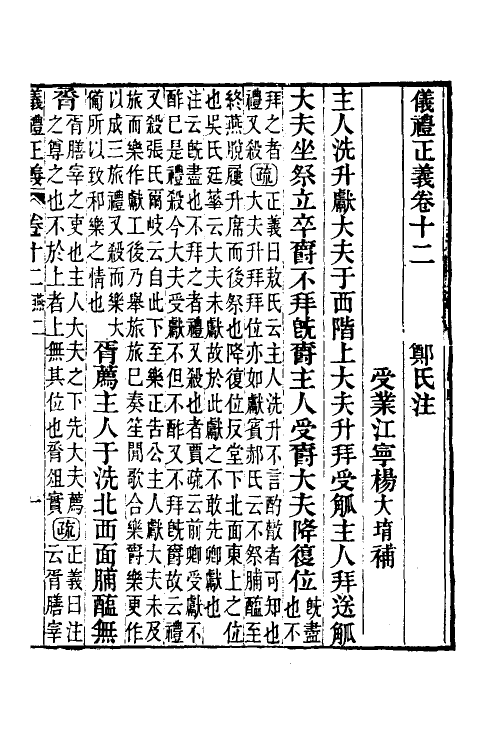 儀禮正義卷十二　鄭氏注
受業江寧楊大堉補
主人洗升獻大夫于西階上大夫升拜受觚主人拜送觚
大夫坐祭立卒爵不拜旣爵主人受爵大夫降復位
旣盡
也不
拜之者
禮又殺
疏
正義曰敖氏云主人洗升不言酌散者可知也
大夫升拜拜位亦如獻賓郝氏云不祭脯醢至
終燕脫屨升席而後祭也降復位反堂下北面東上之位
也吳氏廷華云大夫未獻故於此獻之不敢先卿獻也
注云旣盡也不拜之者禮又殺也者賈疏云前卿受獻不
酢已是禮殺今大夫受獻不但不酢又不拜旣爵故云禮
又殺張氏爾岐云自此下至樂正告公主人獻大夫未及
旅而樂作獻工後乃舉旅旅已奏笙閒歌合樂爵樂更作
以成三旅禮又殺而樂大
備所以致和樂之情也
胥薦主人于洗北西面脯醢無
脀
胥膳宰之吏也主人大夫之下先大夫薦
之尊之也不於上者上無其位也脀俎實
疏
正義曰注
云胥膳宰
儀禮正義 卷十二燕二 一